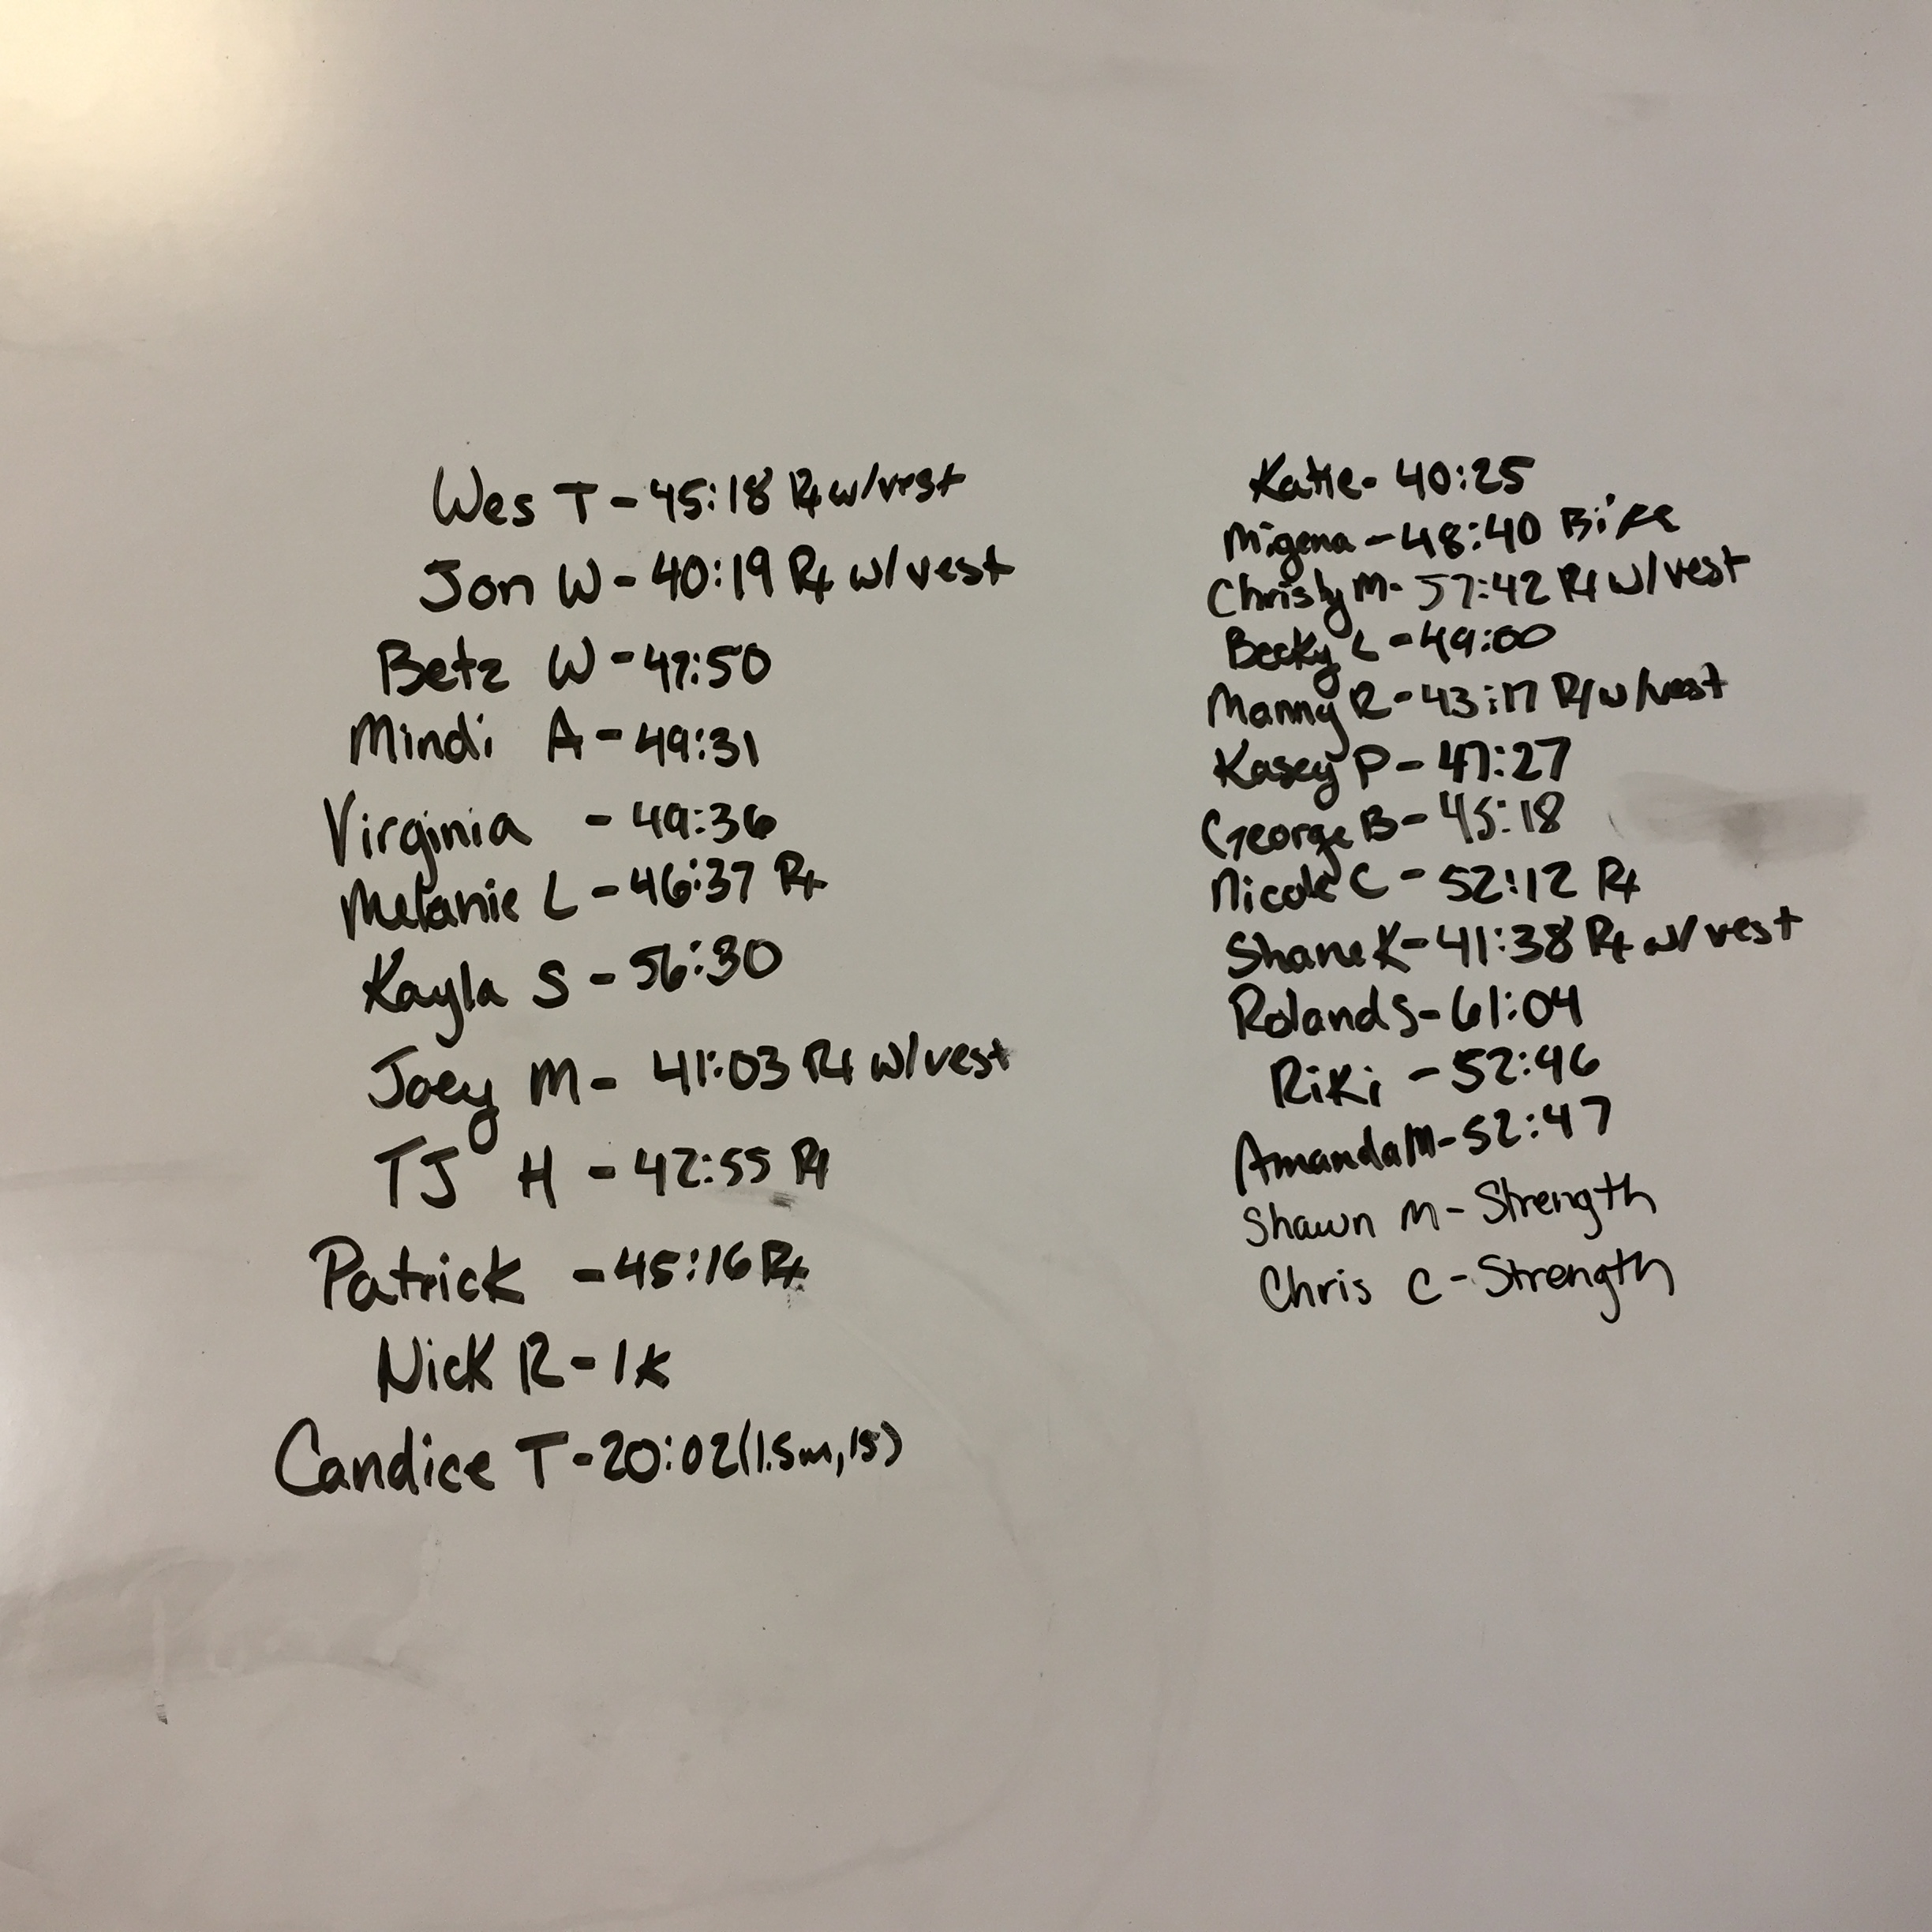 Wes T - 45:18 Rx w/vest
Jon W - 40:19 Rx w/vest
Betz W - 47:50
Mindi A - 49:31
Virginia - 49:36
Melanie L - 46:37 Rx
Kayla S - 56:30
Joey M - 41:03 Rx w/vest
TJ H - 42:55 Rx
Patrick - 45:16 Rx
Nick R - 1k
Candice T - 20:02 (1.5m, 15)
Katie - 40:25
Migena - 48:40 Bike
Christy M - 57:42 Rx w/vest
Becky L - 49:00
Manny R - 43:17 Rx w/vest
Kasey P - 47:27
George B - 45:18
Nicole C - 52:12 Rx
Shane K - 41:38 Rx w/vest
Roland S - 61:04
Riki - 52:46
Amanda M - 52:47
Shawn M - Strength
Chris C - Strength